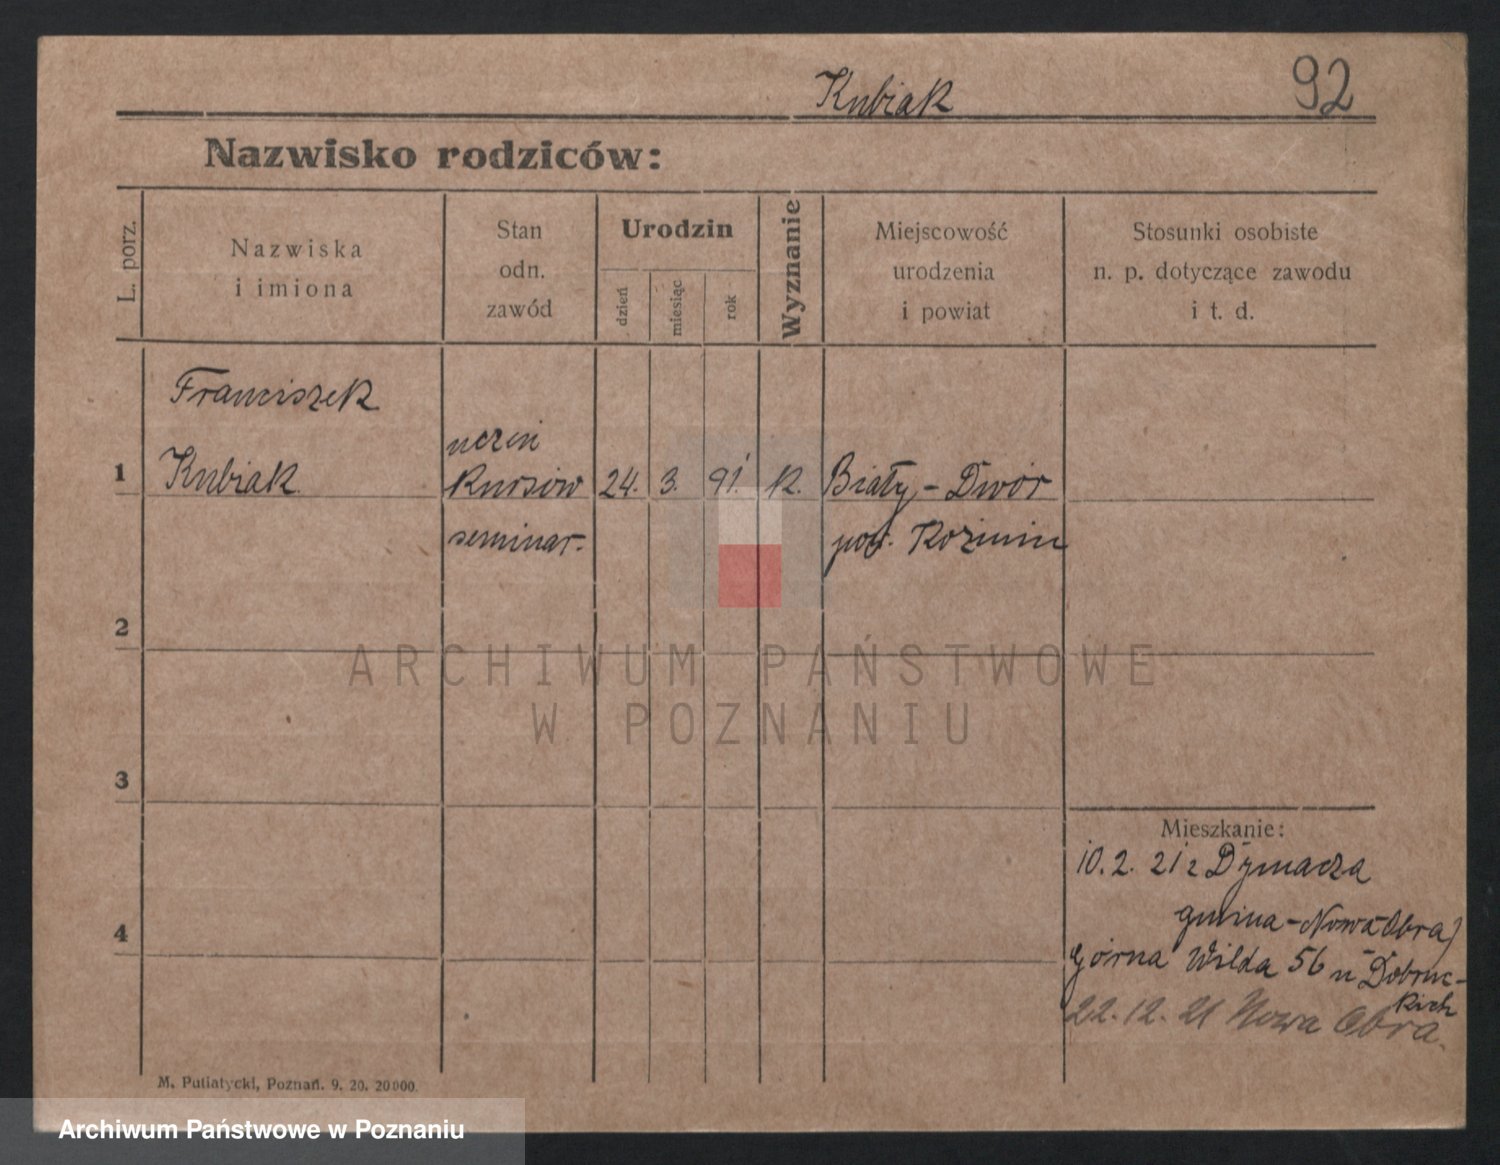 Kubiak 92
Nazwisko rodziców:
L. porz.
Nazwiska
i imiona
Stan
odn.
zawód
Urodzin
dzień
miesiąc
rok
Wyznanie
Miejscowość
urodzenia
i powiat
Stosunki osobiste
n. p. dotyczące zawodu
i t. d.
Franciszek
uczeń
1 Kubiak Kursów 24. 3. 91. k. Biały-Dwór
seminar. pow. Kozmin
2
ARCHIWUM PAŃSTWOWE
W POZNANIU
3
Mieszkanie:
10.2.21 z Dymacza
gmina-Nowa Obra)
4
Górna Wilda 56 u Dobruc-
kich
22.12.21 Nowa Obra.
M. Putiatycki, Poznań. 9. 20. 20000.
Archiwum Państwowe w Poznaniu